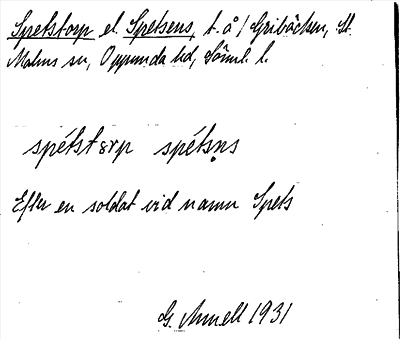 Spetstorp el. Spetsens, t. å / Gribäcken, St.
Malms sn, Oppunda hd, Söml. l.
spétstɤrp spétsn̥s
Efter en soldat vid namn Spets
G. Annell 1931